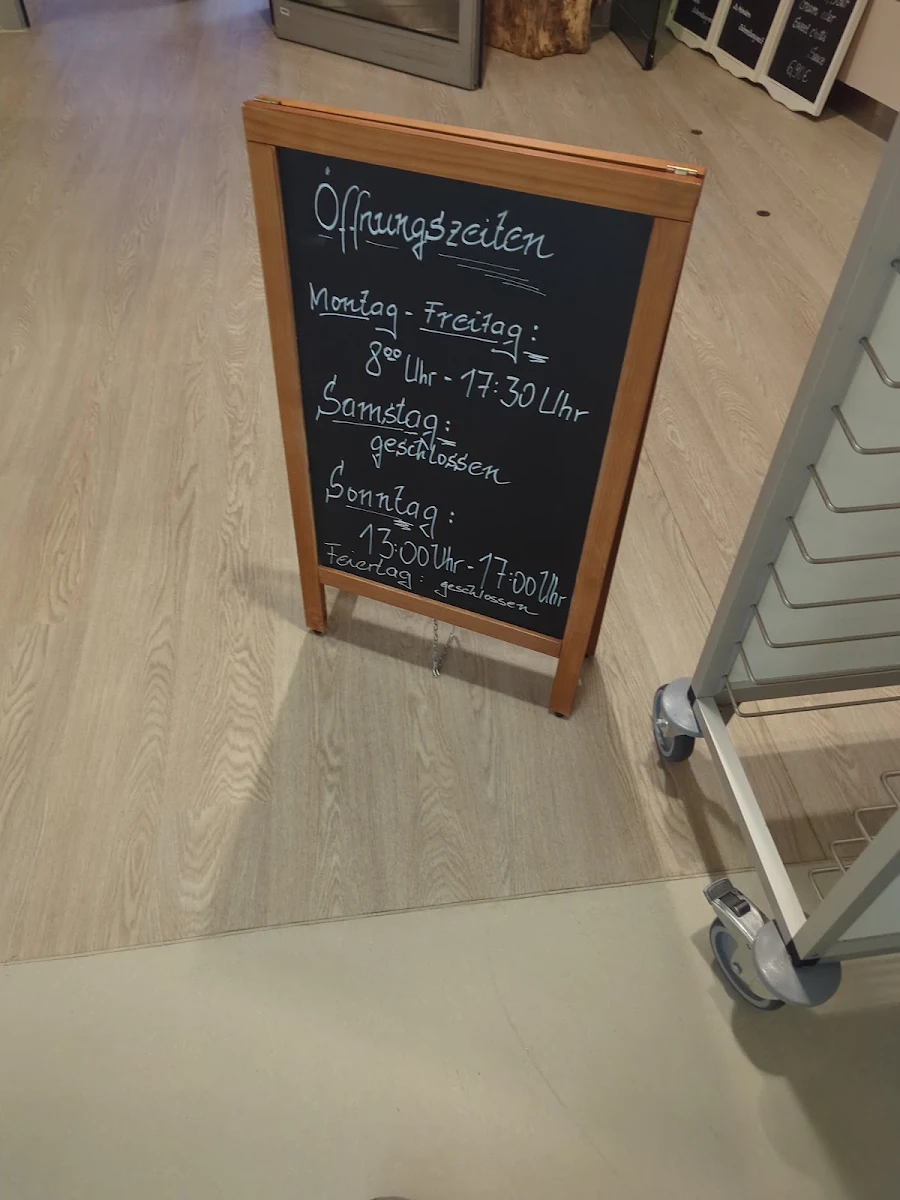 Öffnungszeiten
Montag - Freitag:
8⁰⁰ Uhr - 17:30 Uhr
Samstag:
geschlossen
Sonntag:
13:00 Uhr - 17:00 Uhr
Feiertag: geschlossen
Sauce
6,90 €